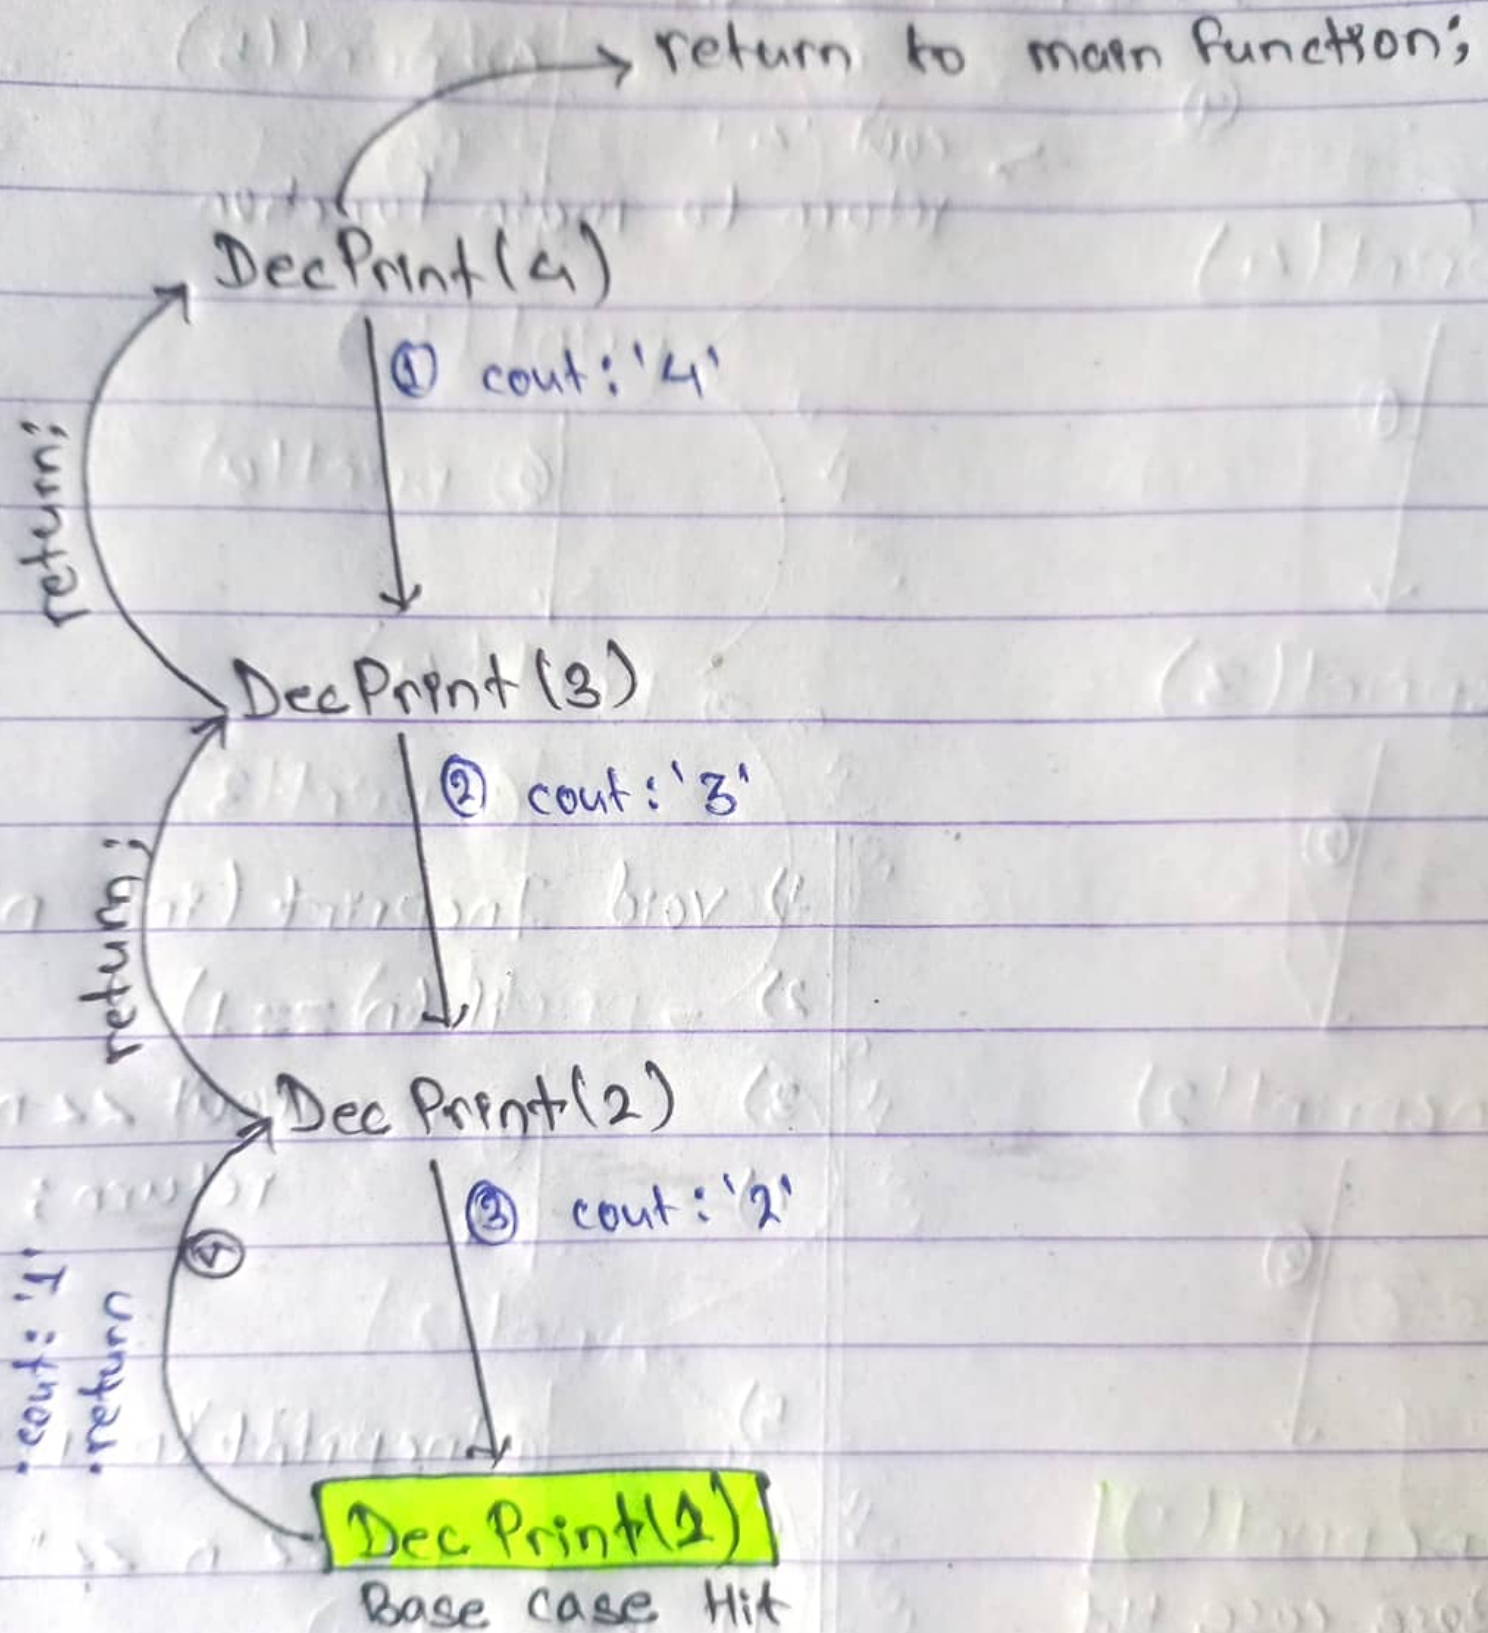 return to main function;
DecPrint(4)
① cout: '4'
return;
DecPrint(3)
② cout: '3'
return;
Dec Print(2)
③ cout: '2'
④
• cout: '1'
• return
Dec Print(1)
Base case Hit